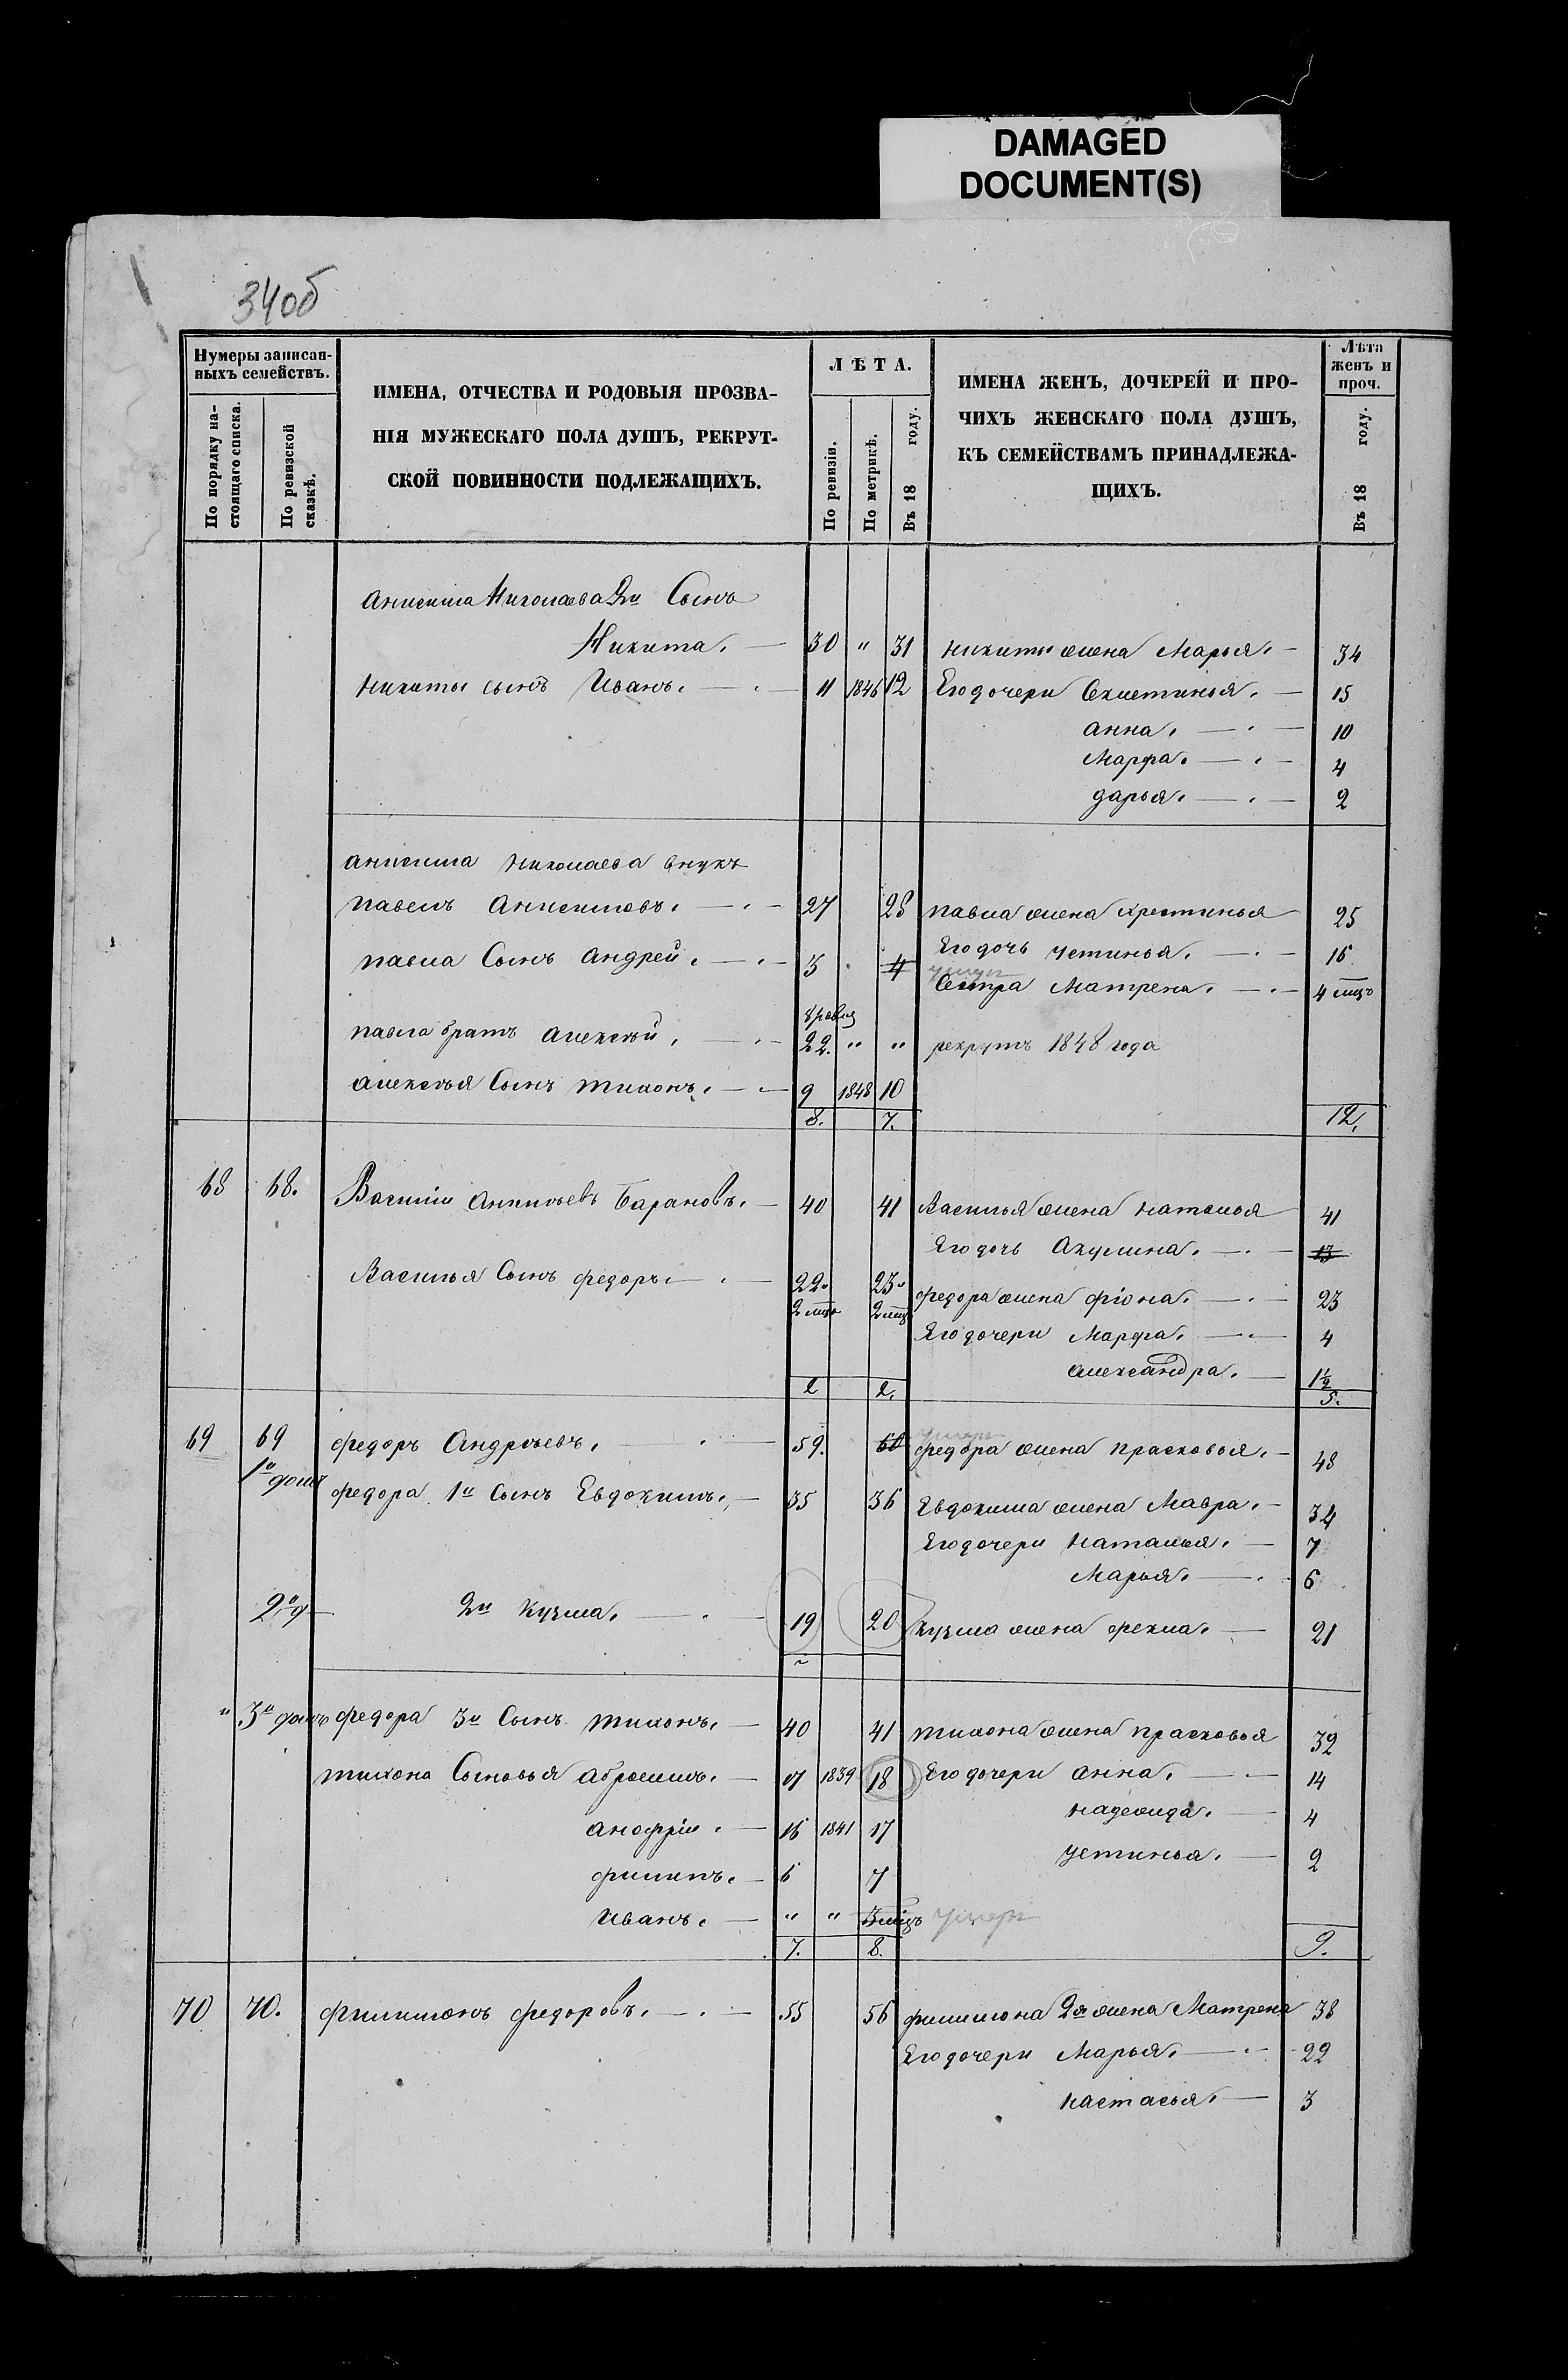 DAMAGED
DOCUMENT(S)
34об
Нумеры записан-
ныхъ семействъ.
По порядку на-
стоящаго списка.
По ревизской
сказкѣ.
ИМЕНА, ОТЧЕСТВА И РОДОВЫЯ ПРОЗВА-
НІЯ МУЖЕСКАГО ПОЛА ДУШЪ, РЕКРУТ-
СКОЙ ПОВИННОСТИ ПОДЛЕЖАЩИХЪ.
ЛѢТА.
По ревизіи.
По метрикѣ.
Въ 18 году.
ИМЕНА ЖЕНЪ, ДОЧЕРЕЙ И ПРО-
ЧИХЪ ЖЕНСКАГО ПОЛА ДУШЪ,
КЪ СЕМЕЙСТВАМЪ ПРИНАДЛЕЖА-
ЩИХЪ.
Лѣта
женъ и
проч.
Въ 18 году.
анисима Николаева 2й Сынъ
Никита. 30 " 31 никиты жена Марья. 34
никиты сынъ Иванъ. 11 1846 12 Его дочери 15
анна. 10
Марфа. 4
дарья. 2
анисима николаева внукъ
павелъ анисимовъ. 27 28 павла жена хрестинья 25
павла Сынъ андрей. 3 4 Его дочь устинья. 16
умерл
Сестра Матрена. 4 мцъ
павла братъ алексѣй. 22. " " рекрутъ 1848 года
алексѣя Сынъ тихонъ. 9 1848 10
8. 7. 12.
68 68. Василій Барановъ. 40 41 Василья жена наталья 41
Его дочь Акулина. 13
Василья Сынъ федоръ 22. 23. федора жена фіона. 23
2 мцъ 2 мцъ
Его дочери Марфа. 4
александра. 1½
2 2. 5.
69 69 федоръ Андреевъ. 59. 60 федора жена прасковья. 48
умерл
1й домъ федора 1й сынъ Евдокимъ. 35 36 Евдокима жена Мавра. 34
Его дочери наталья. 7
Марья. 6
2й д 2й кузма. 19 20 кузма жена фекла. 21
" 3й домъ федора 3й Сынъ тихонъ. 40 41 тихона жена прасковья 32
тихона Сыновья абросимъ. 17 1839 18 Его дочери анна. 14
анофрій. 16 1841 17 надежда. 4
филипъ. 6 7 устинья. 2
Иванъ. " " 3 мцъ умеръ
7. 8. 9.
70 70. филимонъ федоровъ. 55 56 филимона 2я жена Матрена 38
Его дочери Марья. 22
настасья. 3